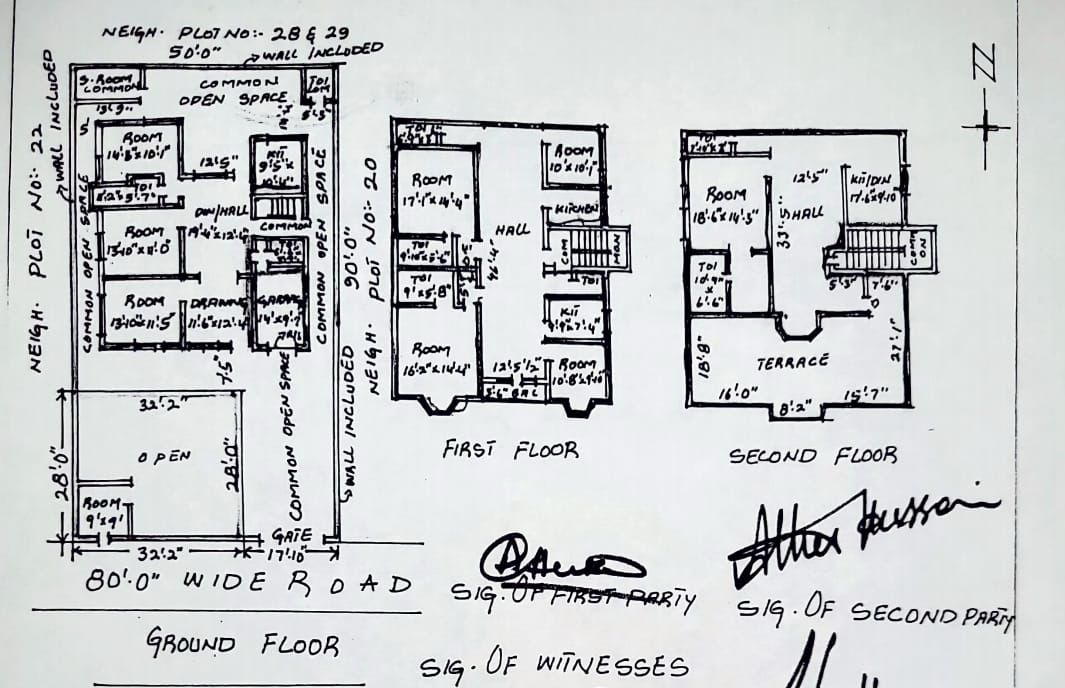 NEIGH. PLOT NO:- 28 & 29
50'.0"
WALL INCLUDED
NEIGH. PLOT NO:- 22
WALL INCLUDED
S.ROOM
COMMON
COMMON
OPEN SPACE
TOI
COM
ROOM
14'.3"x10'.1"
12'.5"
KIT
9'.5"x
10'.4"
TOI
DIN/HALL
19'.4"x12'.4"
COMMON
ROOM
13'.10"x11'.0"
ROOM
13'.10"x11'.5"
DRAWING
11'.6"x12'.4"
GARAGE
14'x9'.7"
COMMON OPEN SPACE
COMMON OPEN SPACE
90'.0"
NEIGH. PLOT NO:- 20
WALL INCLUDED
COMMON OPEN SPACE
7'.5"
32'.2"
OPEN
28'.0"
28'.0"
ROOM
9'x9'
GATE
32'.2"
17'.10"
80'.0" WIDE ROAD
GROUND FLOOR
TOI
ROOM
17'.1"x14'.4"
ROOM
10'x10'.1"
KITCHEN
HALL
46'.4"
COM
MON
TOI
9'.10"x5'.6"
TOI
9'x5'.8"
TOI
KIT
9'.9"x7'.4"
ROOM
16'.2"x14'.4"
12'.5 1/2"
3'.6" BAL
ROOM
10'.8"x9'.10"
FIRST FLOOR
TOI
ROOM
18'.6"x14'.3"
12'.5"
HALL
33'.5"
KIT/DIN
17'.6"x9'.10"
COMM
ON
TOI
10'.9"x
6'.6"
5'.3"
7'.6"
18'.8"
TERRACE
27'.1"
16'.0"
8'.2"
15'.7"
SECOND FLOOR
N
SIG. OF FIRST PARTY
Ather Hussain
SIG. OF SECOND PARTY
SIG. OF WITNESSES